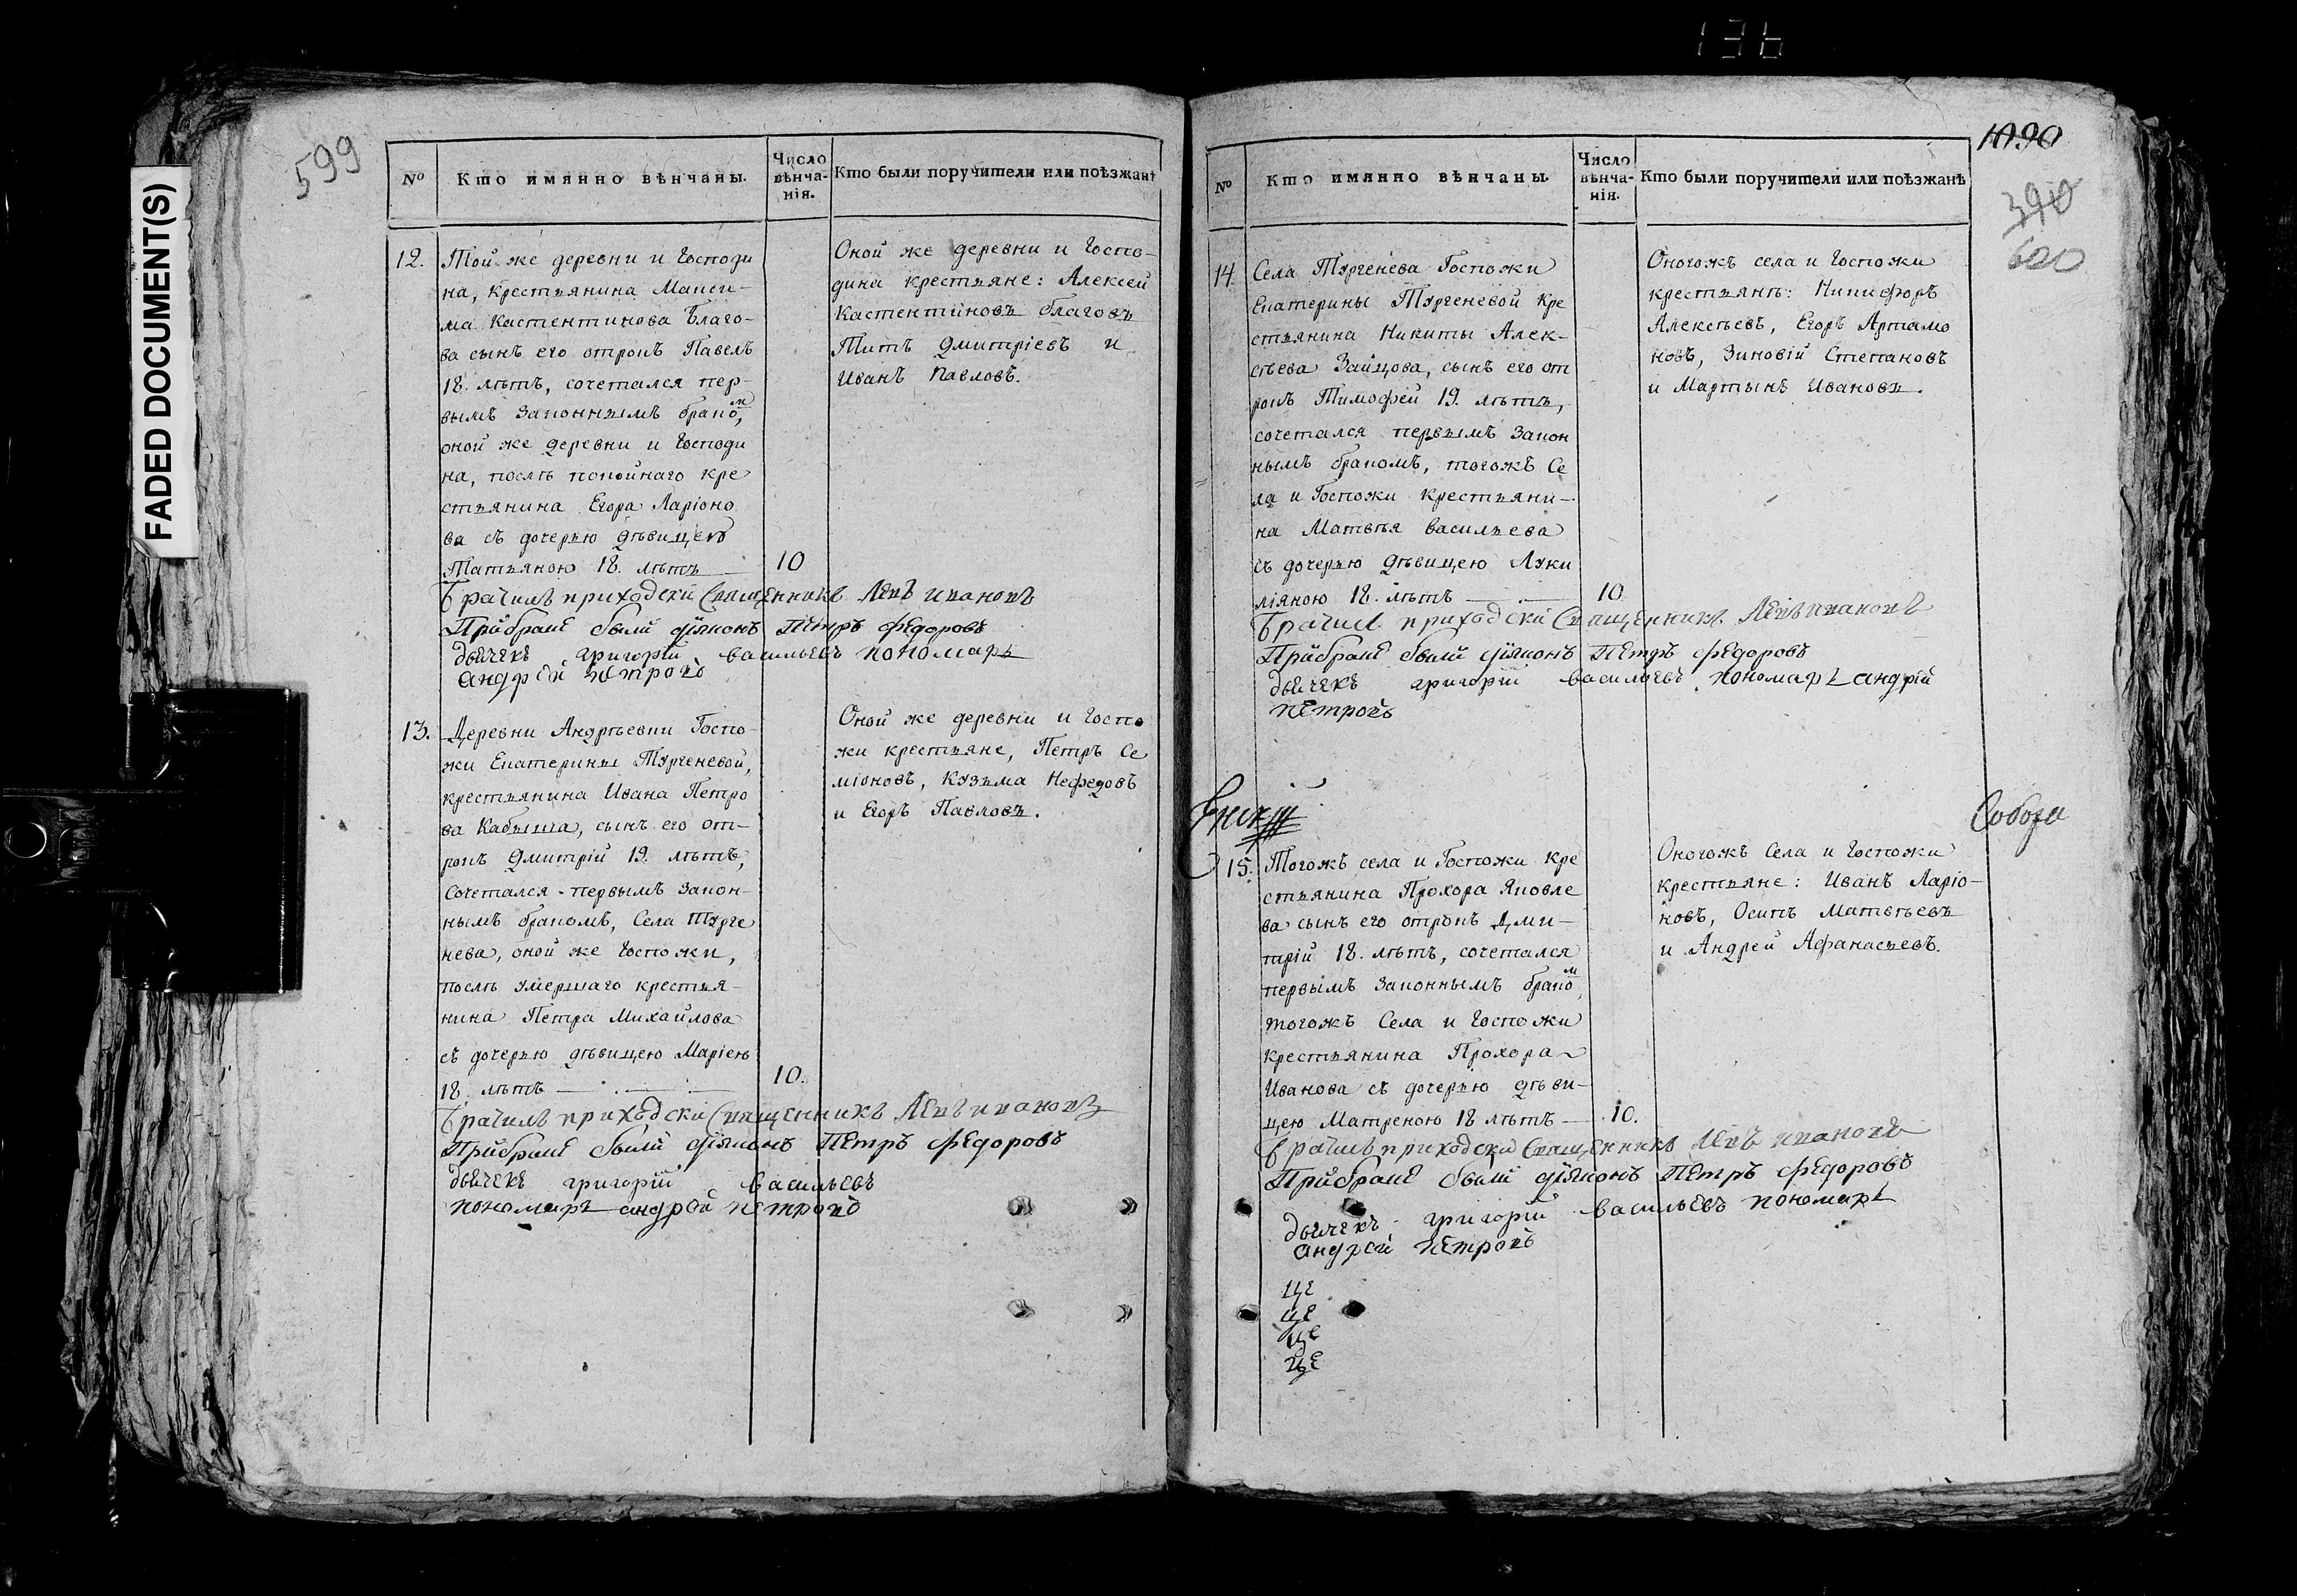 136
FADED DOCUMENT(S)
599
№
Кто имянно вѣнчаны.
Число
вѣнча-
нія.
Кто были поручители или поѣзжанѣ
12.
Той же деревни и Господи
на, крестьянина Макси-
ма Кастентинова Благо-
ва сынъ его отрокъ Павелъ
18. лѣтъ, сочетался пер-
вымъ законнымъ бракомъ,
оной же деревни и Господи
на, послѣ покойнаго кре
стьянина Егора Ларіоно
ва съ дочерью дѣвицею
Татьяною 18. лѣтъ
10
Оной же деревни и Госпо-
дина крестьяне: Алексей
Кастентиновъ Благовъ
Титъ Дмитріевъ и
Иванъ Павловъ.
Брачилъ приходски Священникъ Левъ Ивановъ
Прибраке были діяконъ Петръ Федоровъ
дьячекъ григорій васильевъ пономарь
андрей петровъ
13.
Деревни Андрѣевки Госпо-
жи Екатерины Тургеневой,
крестьянина Ивана Петро
ва Кабыша, сынъ его от-
рокъ Дмитрій 19. лѣтъ,
сочетался первымъ закон-
нымъ бракомъ, Села Турге
нева, оной же Госпожи,
послѣ умершаго крестья-
нина Петра Михайлова
съ дочерью дѣвицею Маріею
18. лѣтъ
10.
Оной же деревни и Госпо
жи крестьяне, Петръ Се
міоновъ, Кузьма Нефедовъ
и Егоръ Павловъ.
Брачилъ приходски Священникъ Левъ Ивановъ
Прибраке были діяконъ Петръ Федоровъ
дьячекъ григорій васильевъ
пономарь андрей петровъ
1090
390
600
№
Кто имянно вѣнчаны.
Число
вѣнча-
нія.
Кто были поручители или поѣзжанѣ
14.
Села Тургенева Госпожи
Екатерины Тургеневой кре
стьянина Никиты Алек-
сѣева Зайцова, сынъ его от
рокъ Тимофей 19. лѣтъ,
сочетался первымъ закон
нымъ бракомъ, тогожъ Се
ла и Госпожи крестьяни-
на Матвѣя Васильева
съ дочерью дѣвицею Луки
ліяною 18. лѣтъ
10
Оногожъ села и Госпожи
крестьянѣ: Никифоръ
Алексѣевъ, Егоръ Артамо
новъ, Зиновій Степановъ
и Мартынъ Ивановъ.
Брачил приходски Священникъ Левъ Ивановъ
Прибраке были діяконъ Петръ Федоровъ
дьячекъ григорій васильевъ пономарь андрій
петровъ
Собора
15.
Тогожъ села и Госпожи кре
стьянина Прохора Яковле
ва сынъ его отрокъ Дми-
трій 18. лѣтъ, сочетался
первымъ законнымъ бракомъ,
тогожъ Села и Госпожи
крестьянина Прохора
Иванова съ дочерью дѣви-
цею Матреною 18 лѣтъ
10.
Оногожъ Села и Госпожи
крестьяне: Иванъ Ларіо-
новъ, Осипъ Матвѣевъ
и Андрей Афанасьевъ.
Брачилъ приходски Священникъ Левъ Ивановъ
Прибраке были діяконъ Петръ Федоровъ
дьячекъ григорій васильевъ пономарь
андрей петровъ
це
це
це
це